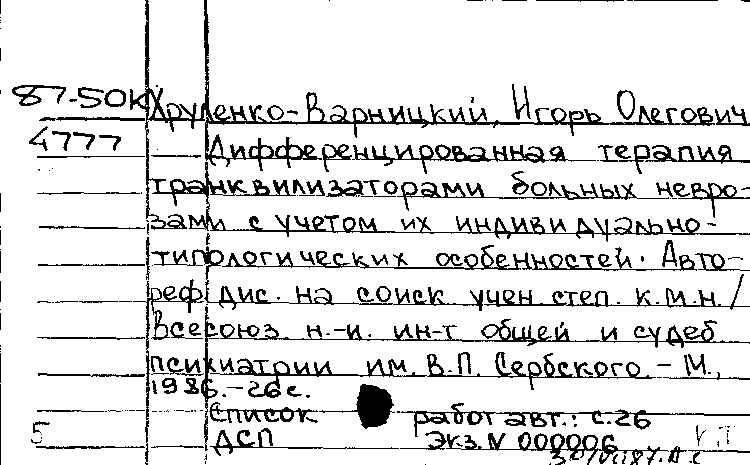 87-50К Хруленко-Варницкий, Игорь Олегович
4777 Дифференцированная терапия
транквилизаторами больных невро-
зами с учетом их индивидуально-
типологических особенностей. Авто-
реф дис. на соиск учен степ. к.м.н./
Всесоюз. н.-и. ин-т общей и судеб
психиатрии им. В.П. Сербского. - М.,
1986. - 26 с.
Список работ авт.: с.26
5 ДСП Экз. N 000006